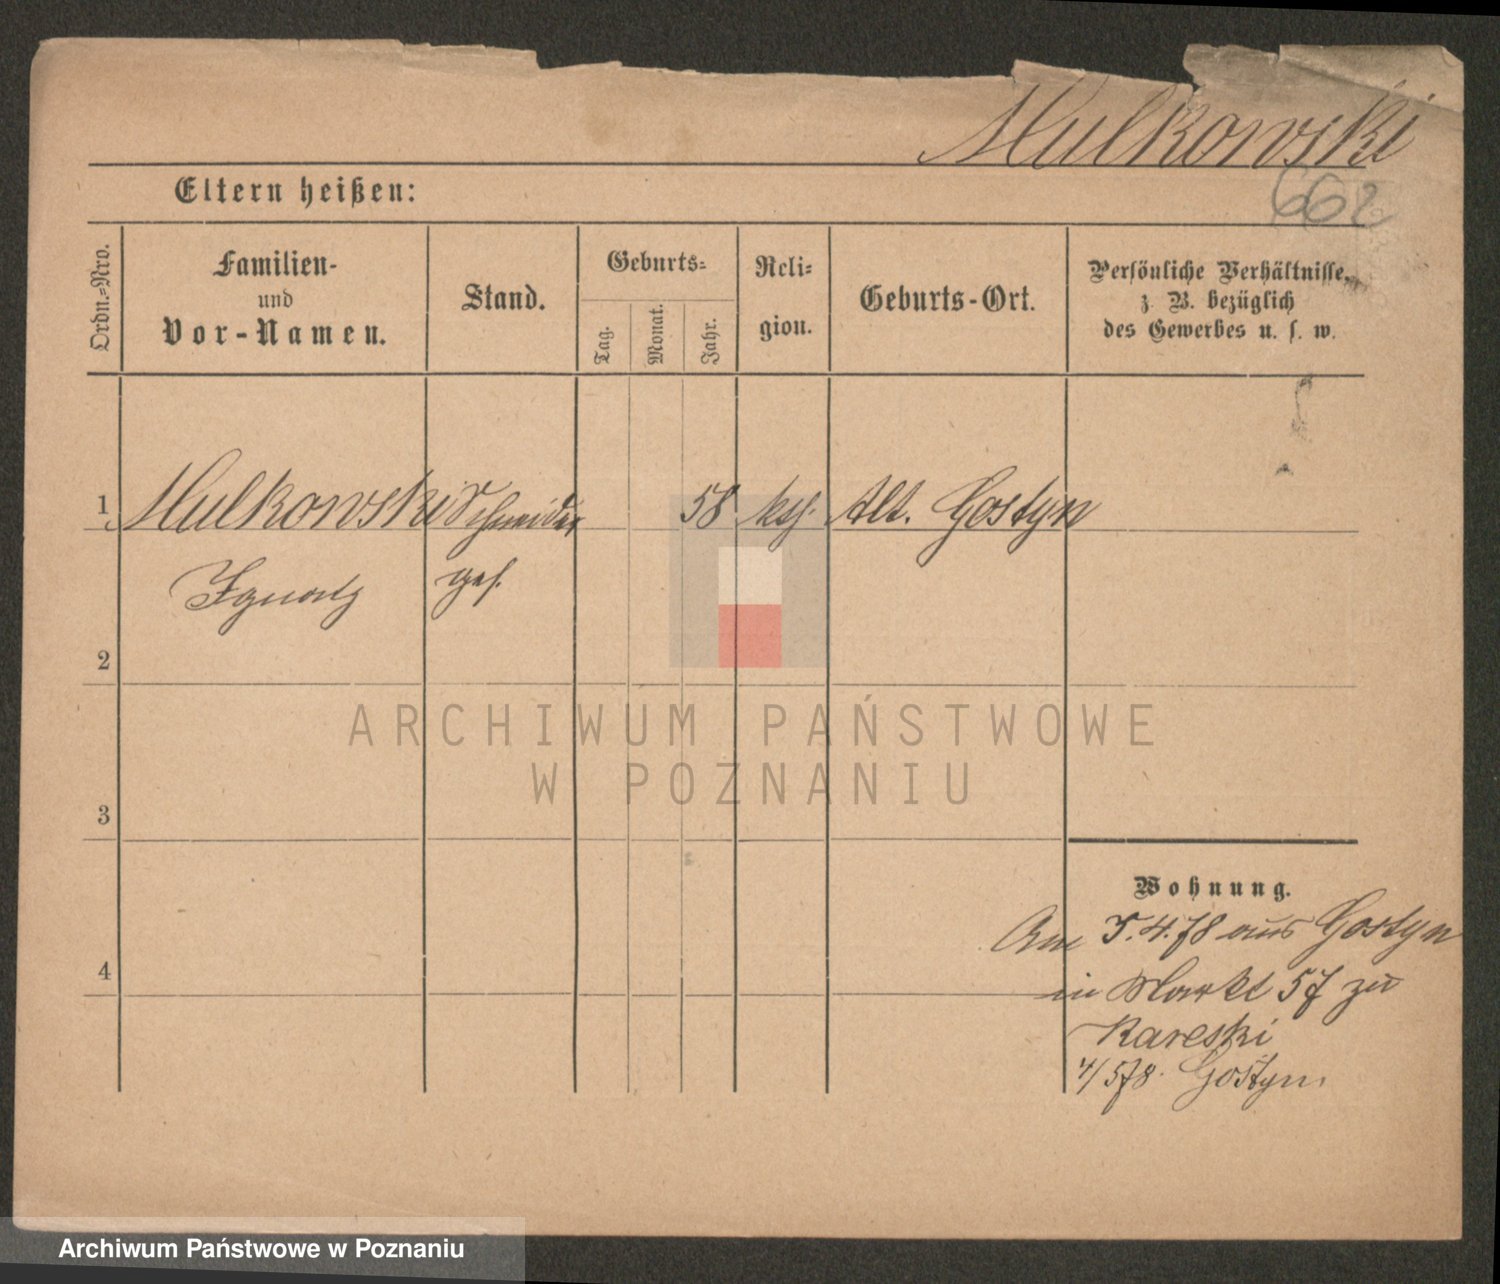 Mulkowski
Eltern heißen:
662
Ordn.-Nro.
Familien-
und
Vor-Namen.
Stand.
Geburts-
Tag.
Monat.
Jahr.
Reli-
gion.
Geburts-Ort.
Persönliche Verhältnisse,
z. B. bezüglich
des Gewerbes u. s. w.
1 Mulkowski Schneider 58 kth. Alt. Gostyn
Ignatz ges.
2
3
4
ARCHIWUM PAŃSTWOWE
W POZNANIU
Wohnung.
Am 5.4.78 aus Gostyn
in Markt 57 zu
Kareski
4/578. Gostyn.
Archiwum Państwowe w Poznaniu